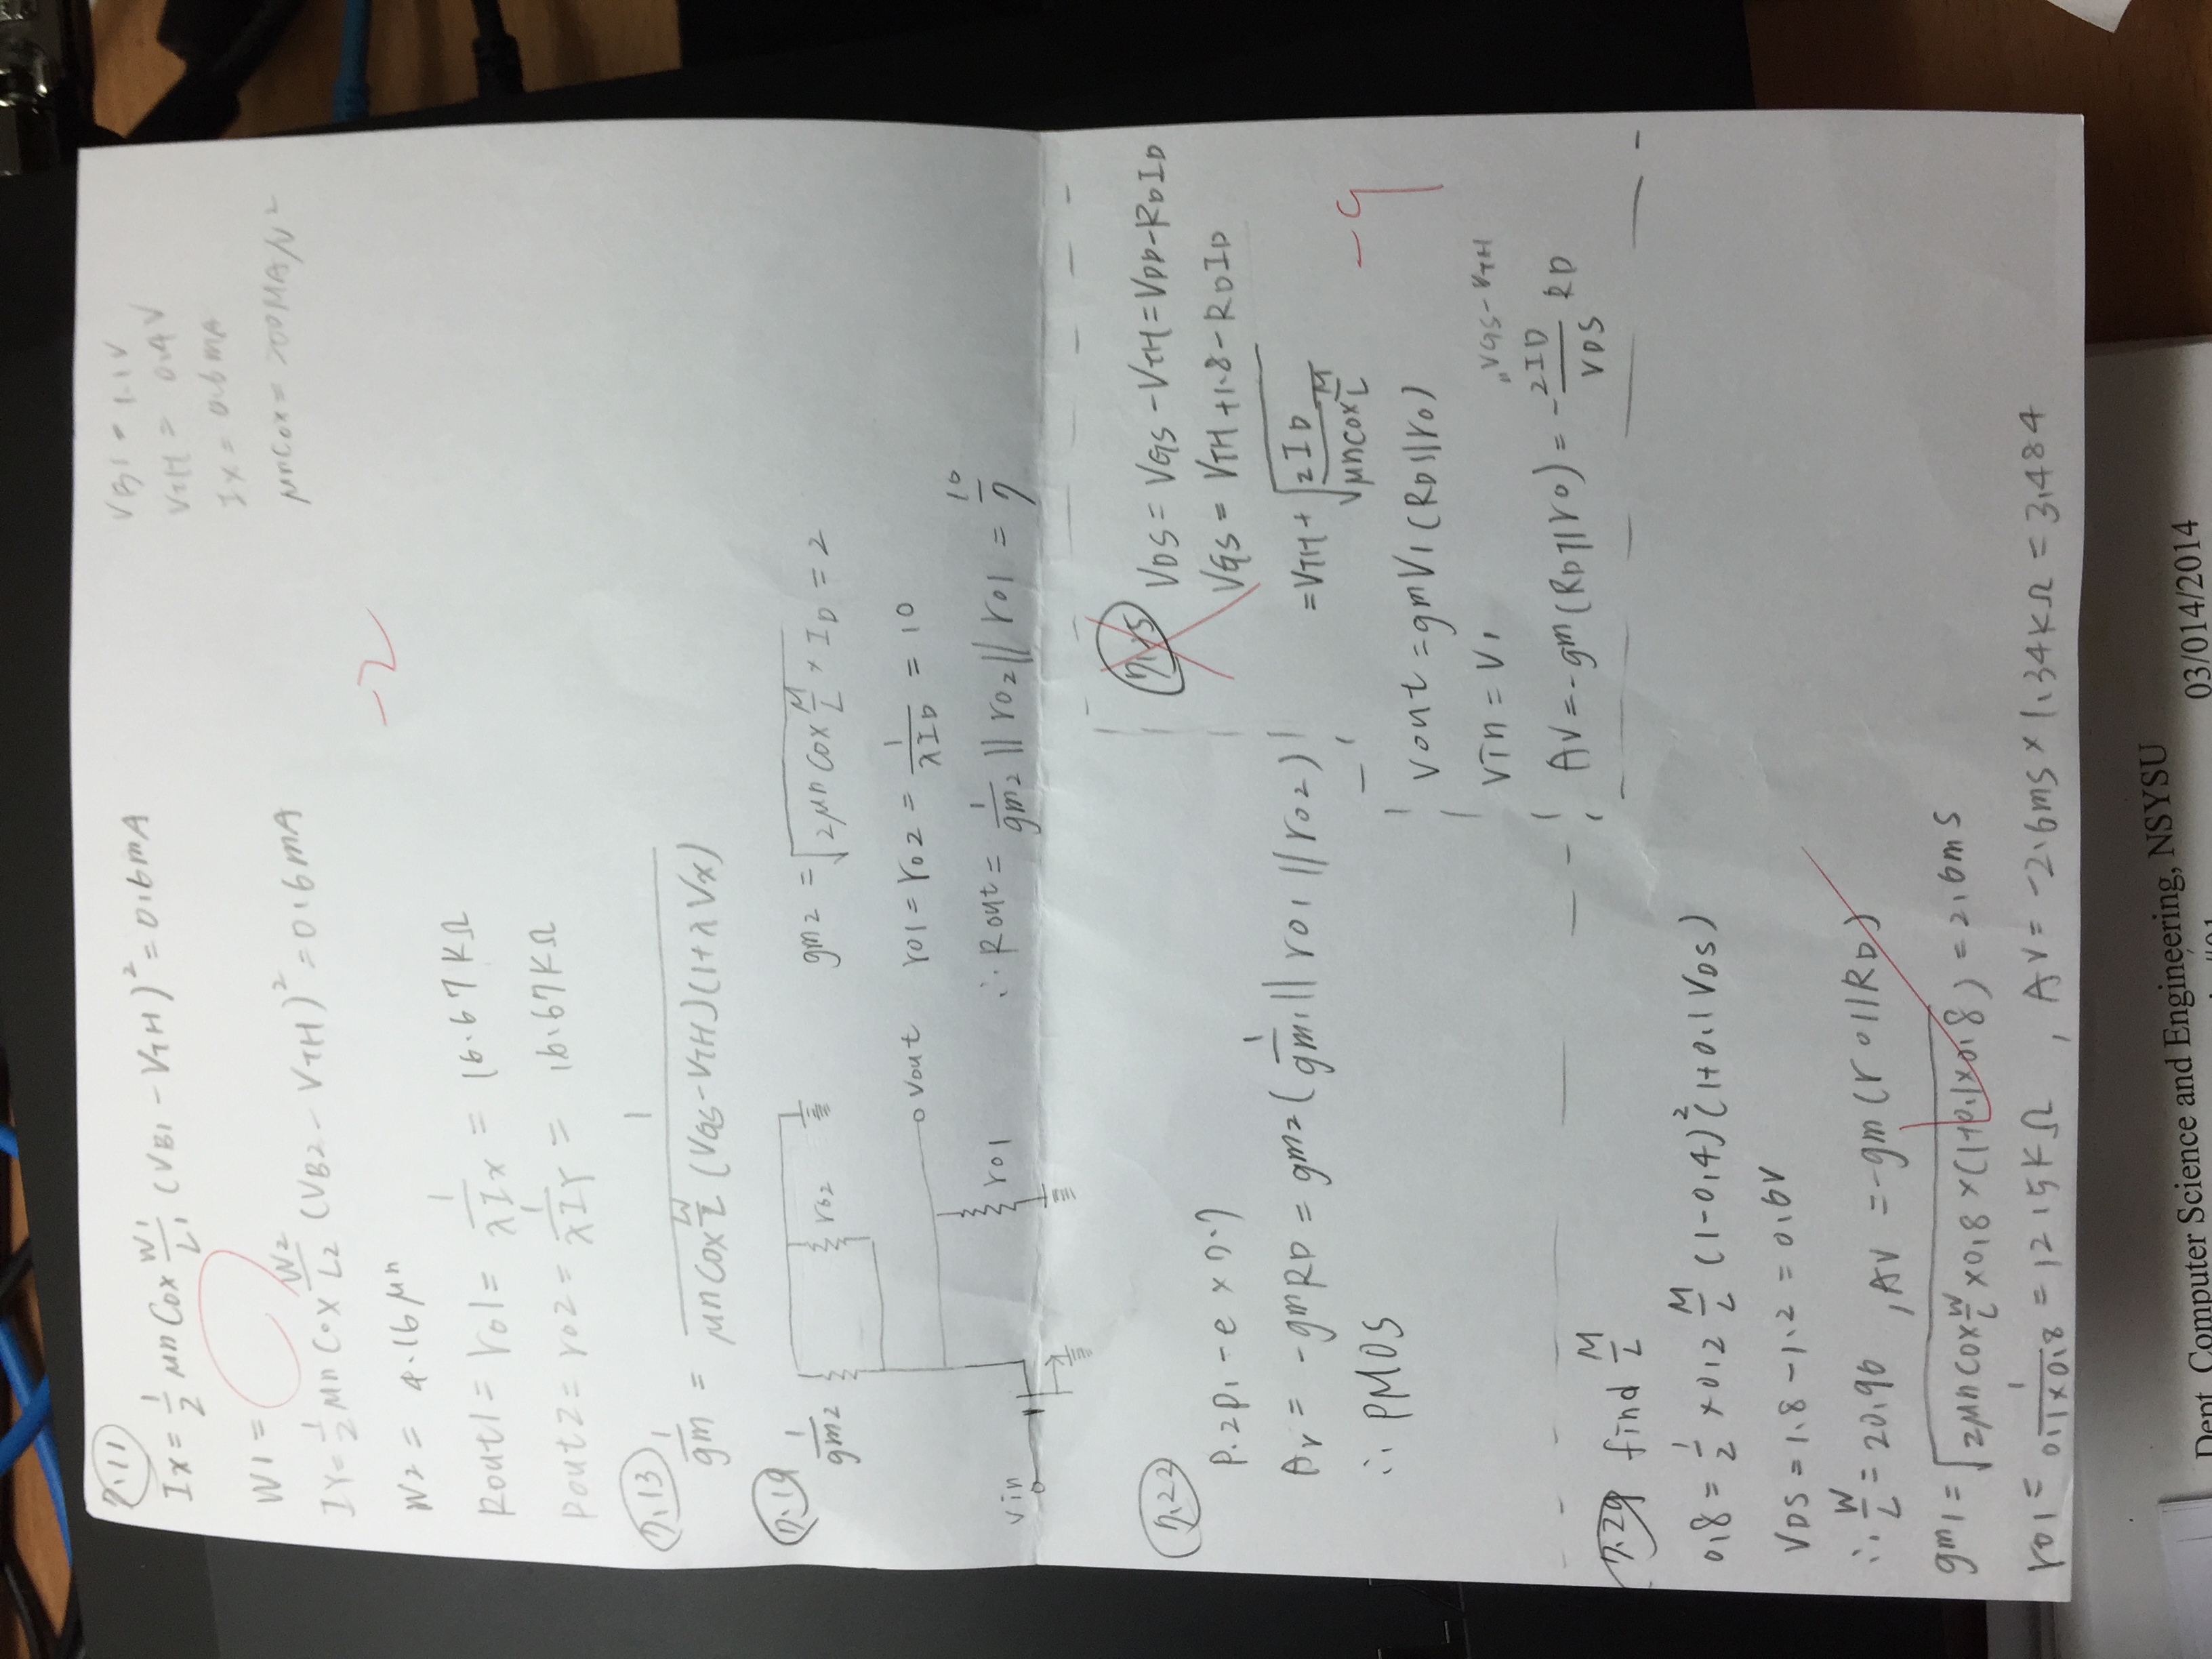 7.11
Ix = 1/2 μn Cox W1/L1 (VB1 - VTH)² = 0.6mA
VB1 = 1.1V
VTH = 0.4V
Ix = 0.6mA
μnCox = 200MA/V²
W1 =
IY = 1/2 μn Cox W2/L2 (VB2 - VTH)² = 0.6mA
-2
W2 = 4.16μn
Rout1 = ro1 = 1/λIx = 16.67KΩ
Rout2 = ro2 = 1/λIY = 16.67KΩ
7.13
1/gm = 1/μn Cox W/L (VGS-VTH)(1+λVx)
7.19
1/gm2
ro2
Vout
ro1
Vin
gm2 = √2μn Cox W/L × ID = 2
ro1 = ro2 = 1/λID = 10
∴ Rout = 1/gm2 || ro2 || ro1 = 10/7
7.22
Av = -gmRD = gm2 (1/gm1 || ro1 || ro2)
∴ PMOS
7.15
VDS = VGS - VTH = VDD - RDID
VGS = VTH + 1.8 - RDID
= VTH + √2ID/μnCox W/L
-9
Vout = gmV1 (RD || ro)
Vin = V1
"VGS - VTH
AV = -gm (RD || ro) = -2ID/VDS RD
7.29 find W/L
0.8 = 1/2 × 0.2 W/L (1-0.4)² (1+0.1VDS)
VDS = 1.8 - 1.2 = 0.6V
∴ W/L = 20.96 , AV = -gm (ro || RD)
gm1 = √2μn Cox W/L × 0.8 × (1+0.1×0.8) = 2.6ms
ro1 = 1/0.1×0.8 = 12.5KΩ , AV = -2.6ms × 1.34KΩ = 3.484
Dept. Computer Science and Engineering, NSYSU
03/014/2014